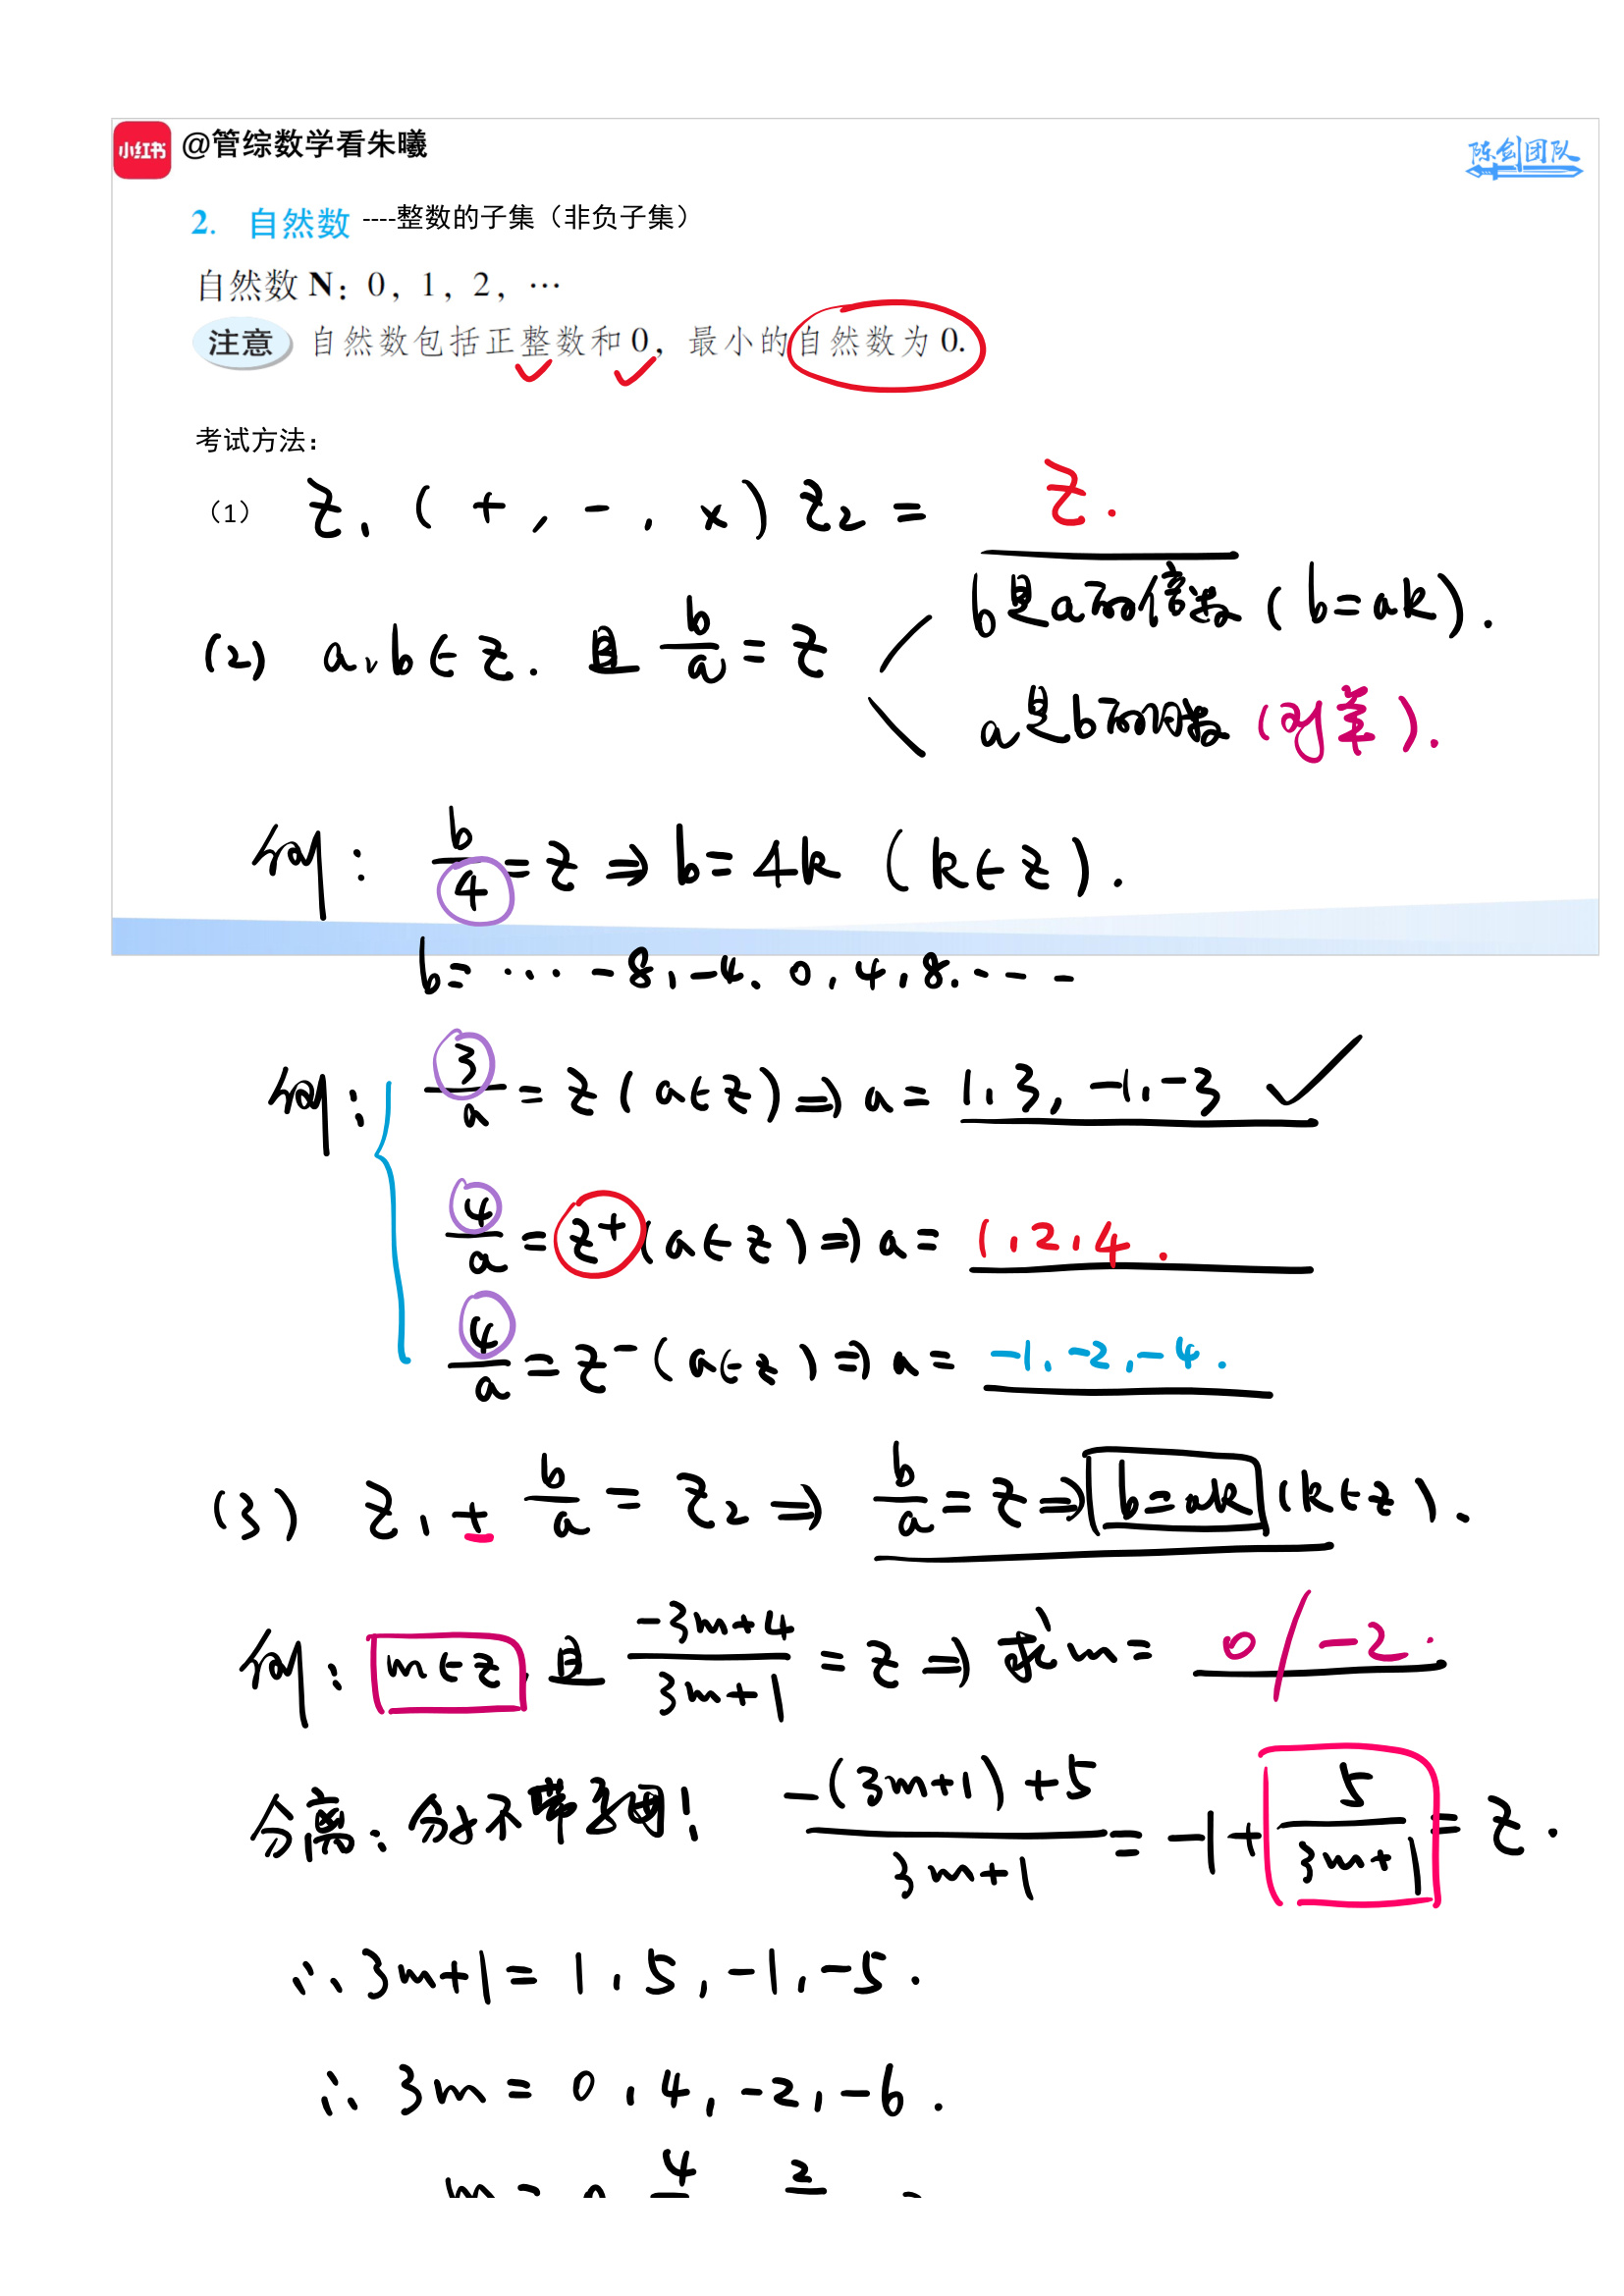 小红书 @管综数学看朱曦
陈剑团队
2. 自然数 ----整数的子集（非负子集）
自然数 N：0，1，2，…
注意 自然数包括正整数和 0，最小的自然数为 0.
考试方法：
（1） Z₁ ( +, -, × ) Z₂ = Z.
(2) a、b∈Z. 且 b/a = Z
b是a的倍数 ( b=ak ).
a是b的约数 ( ).
例： b/4 = Z ⇒ b=4k ( k∈Z ).
b= … -8, -4、0, 4, 8. …
例： 3/a = Z ( a∈Z ) ⇒ a= 1, 3, -1, -3 ✓
4/a = Z⁺ ( a∈Z ) ⇒ a= 1, 2, 4.
4/a = Z⁻ ( a∈Z ) ⇒ a= -1, -2, -4.
(3) Z₁ + b/a = Z₂ ⇒ b/a = Z ⇒ b=ak (k∈Z).
例： m∈Z, 且 (-3m+4)/(3m+1) = Z ⇒ 求m= 0 / -2.
分离：分子不带字母！ (-(3m+1)+5)/(3m+1) = -1 + 5/(3m+1) = Z.
∴ 3m+1 = 1, 5, -1, -5.
∴ 3m = 0, 4, -2, -6.